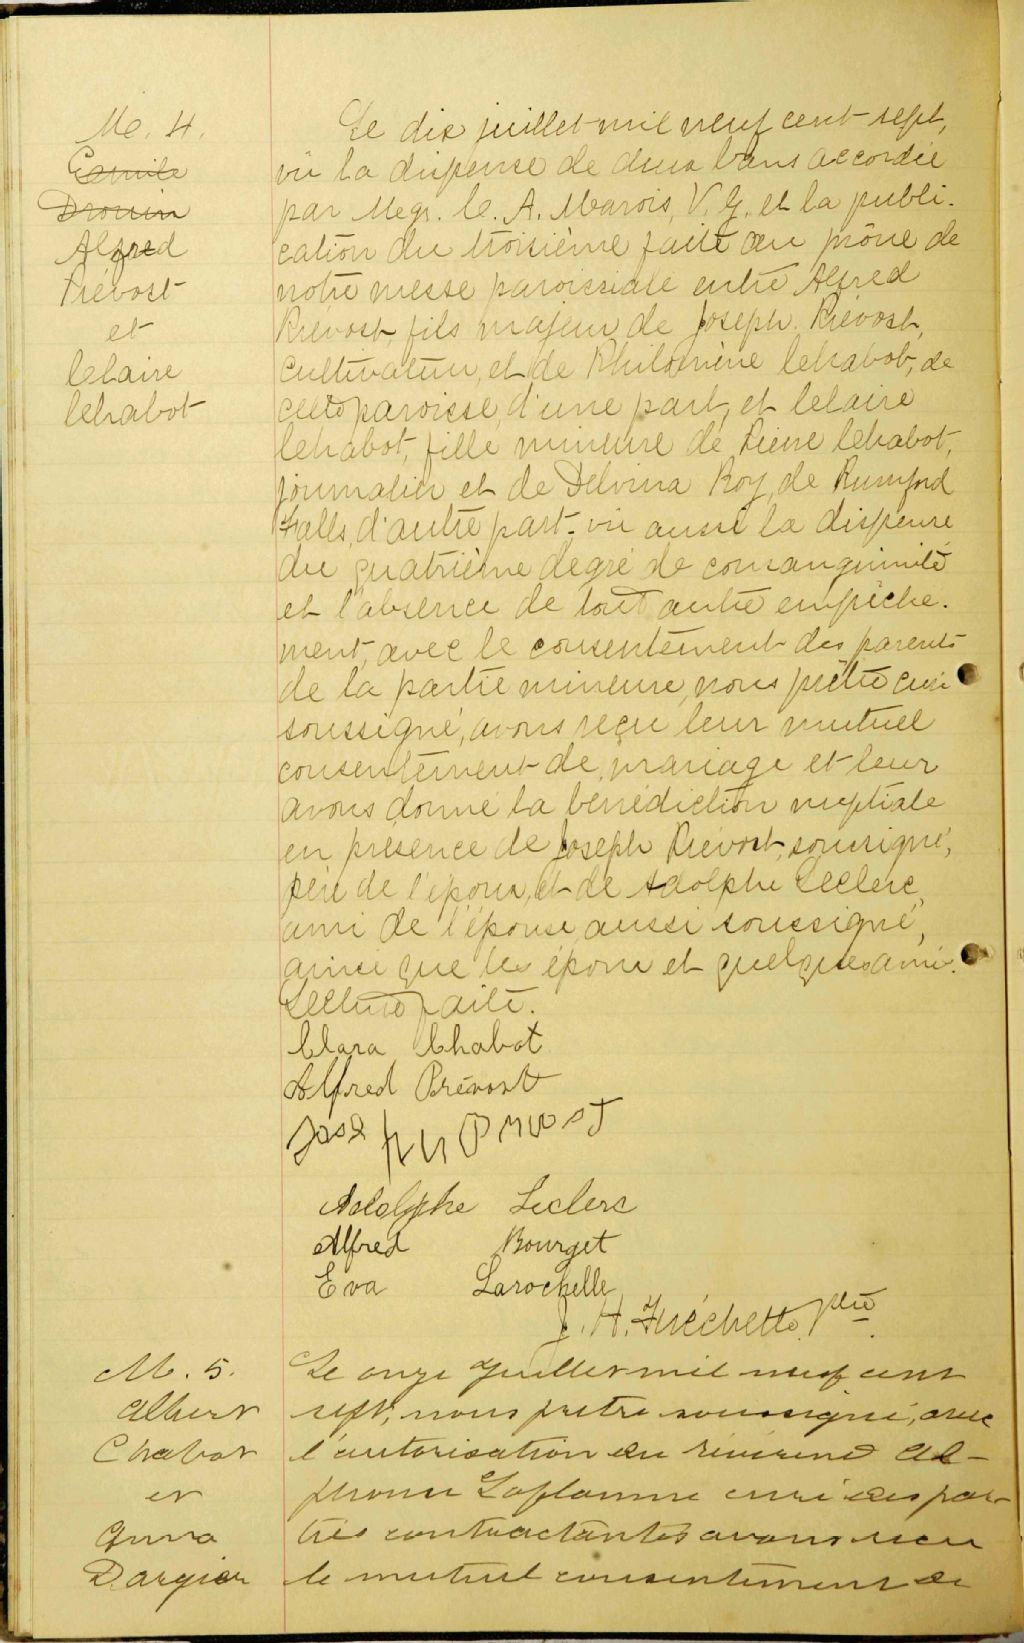 M. 4.
Emile
Drouin
Alfred
Prévost
et
Claire
Chabot
Le dix juillet mil neuf cent sept,
vu la dispense de deux bans accordée
par Mgr. C. A. Marois, V. G. et la publi-
cation du troisième faite au prône de
notre messe paroissiale entre Alfred
Prévost, fils majeur de Joseph Prévost,
cultivateur, et de Philomène Chabot, de
cette paroisse, d'une part, et Claire
Chabot, fille mineure de Pierre Chabot,
journalier et de Delvina Roy, de Rumford
Falls, d'autre part. vu aussi la dispense
du quatrième degré de consanguinité
et l'absence de tout autre empêche-
ment, avec le consentement des parents
de la partie mineure, nous prêtre curé
soussigné, avons reçu leur mutuel
consentement de mariage et leur
avons donné la bénédiction nuptiale
en présence de Joseph Prévost, soussigné,
père de l'époux, et de Adolphe Leclerc,
ami de l'épouse aussi soussigné,
ainsi que les époux et quelques amis.
Lecture faite.
Clara Chabot
Alfred Prévost
Adolphe Leclerc
Alfred Bourget
Eva Larochelle
J. H. Fréchette, Ptre
M. 5.
Albert
Chabot
et
Anna
Le onze Juillet mil neuf cent
sept, nous prêtre soussigné, avec
l'autorisation du révérend Al-
phonse Laflamme curé des par-
ties contractantes avons reçu
le mutuel consentement de